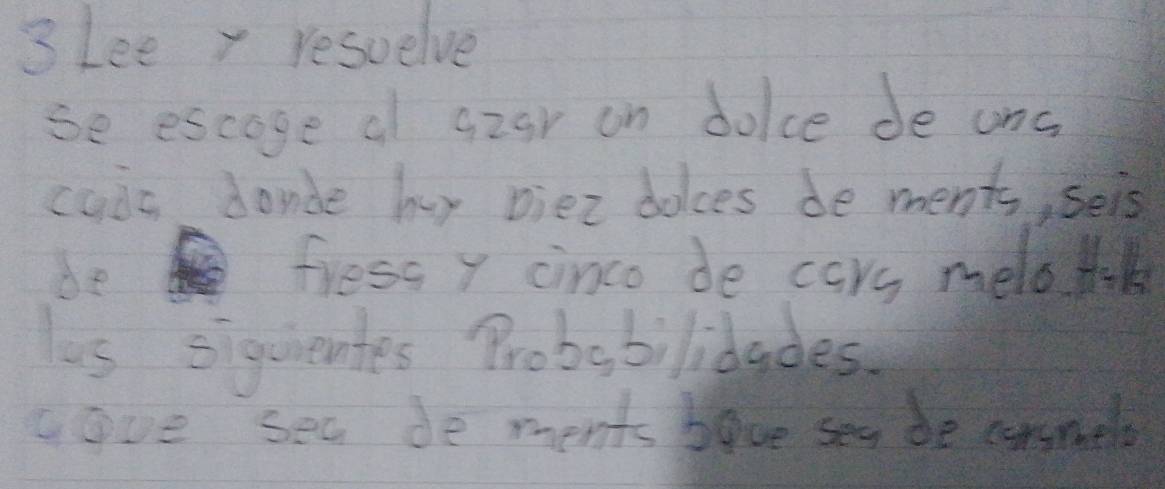 3 Lee y resuelve
se escoge al azar un dulce de una
caja donde hay Diez dulces de menta, seis
de fresa y cinco de cara melo. Halla
las siguientes Probabilidades.
a Que sea de menta b Que sea de caramelo